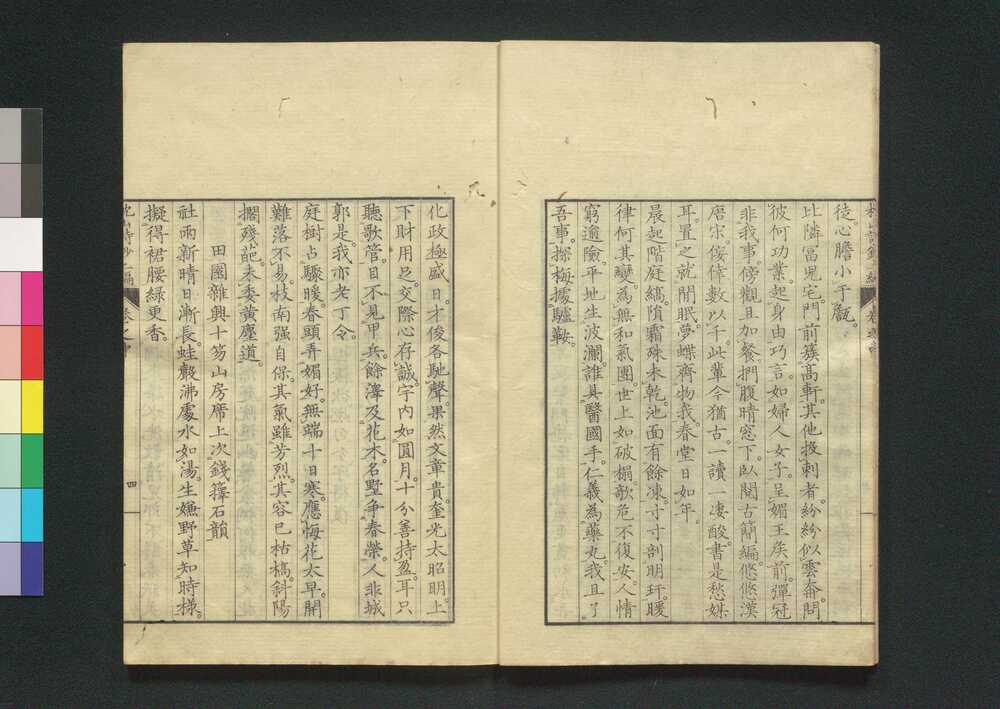 徒心膽小于甔
比隣冨児宅門前簇高軒其他投刺者紛紛似雲奔問
彼何功業起身由巧言如婦人女子呈媚王矦前彈冠
非我事傍觀且加餐捫腹晴窓下臥閲古簡編悠悠漢
唐宋倭偉數以千此輩今猶古一讀一凄酸書是愁媒
耳置之就閒眠夢蝶齊物我春堂日如年
晨起階庭縞隕霜殊未乾池面有餘凍寸寸剖明玕暖
律何其變為無和氣團世上如破榻欹危不復安人情
窮逾險平地生波瀾誰具醫國手仁義為藥丸我且了
吾事探梅據驢鞍
化政極盛日才俊各馳聲果然文章貴奎光太昭明上
下財用足交際心存誠宇内如圓月十分善持盈耳只
聽歌管目不見甲兵餘澤及花木名墅争春榮人非城
郭是我亦老丁令
庭樹占驟暖春頭弄媚好無端十日寒應悔花太早開
難落不易枝南强自保其氣雖芳烈其容已枯槁斜陽
擱殘葩未委黄塵道
田園雜興十笏山房席上次錢籜石韻
社雨新晴日漸長蛙嚴沸處水如湯生嫌野草知時様
擬得裙腰緑更香
四